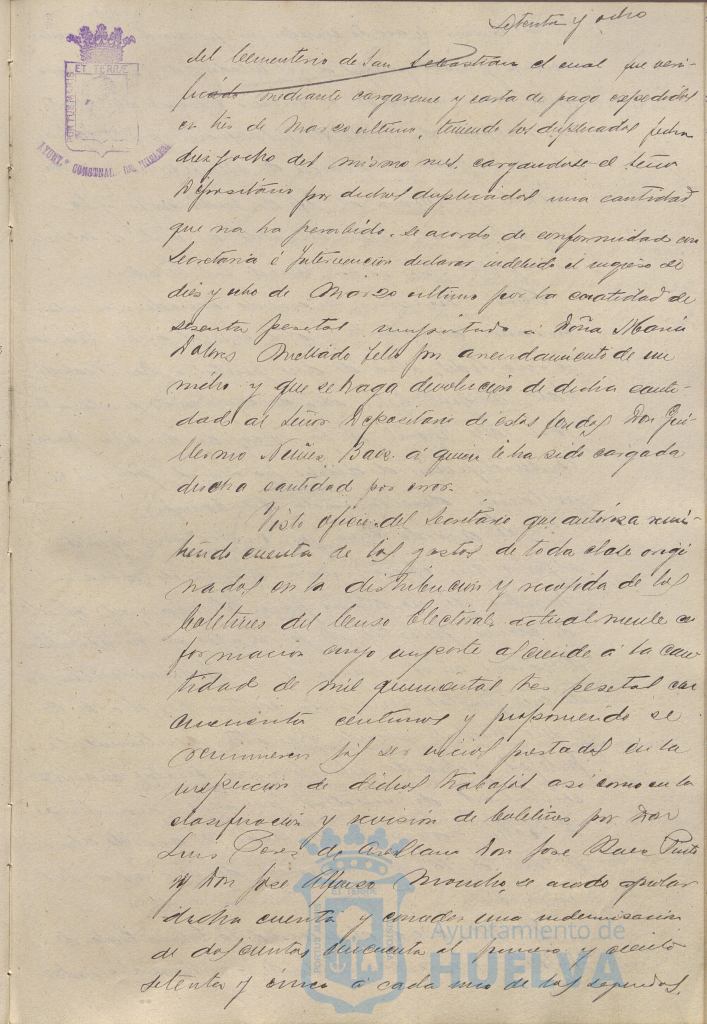 Setenta y ocho
del Cementerio de San Sebastian el cual fue veri-
ficado mediante cargareme y carta de pago expedidos
en tres de Marzo ultimo, teniendo los duplicados fecha
diez y ocho del mismo mes, cargandose el Señor
Depositario por dichos duplicados una cantidad
que no ha percibido. se acordo de conformidad con
Secretaria é Intervencion declarar indebido el ingreso de
diez y ocho de Marzo ultimo por la cantidad de
sesenta pesetas importado á Doña Maria
Dolores Mellado Tello por arrendamiento de un
nicho y que se haga devolucion de dicha canti-
dad al Señor Depositario de estos fondos Don Gui-
llermo Nuñez Baez á quien le ha sido cargada
dicha cantidad por error.
Visto oficio del Secretario que autoriza remi-
tiendo cuenta de los gastos de toda clase origi
nados en la distribucion y recogida de los
boletines del Censo Electoral actualmente en
formacion cuyo importe asciende á la can
tidad de mil quinientas tres pesetas con
cincuenta centimos y proponiendo se
remuneren los servicios prestados en la
inspeccion de dichos trabajos asi como en la
clasificacion y revision de boletines por Don
Luis Perez de Don Jose Baez Pinto
y Don Jose Alfonso se acordo aprobar
dicha cuenta y conceder una indemnizacion
de doscientas cincuenta al primero y ciento
setenta y cinco á cada uno de los segundos.
ET TERRÆ
AYUNT.º CONSTNAL. DE HUELVA
Ayuntamiento de
HUELVA